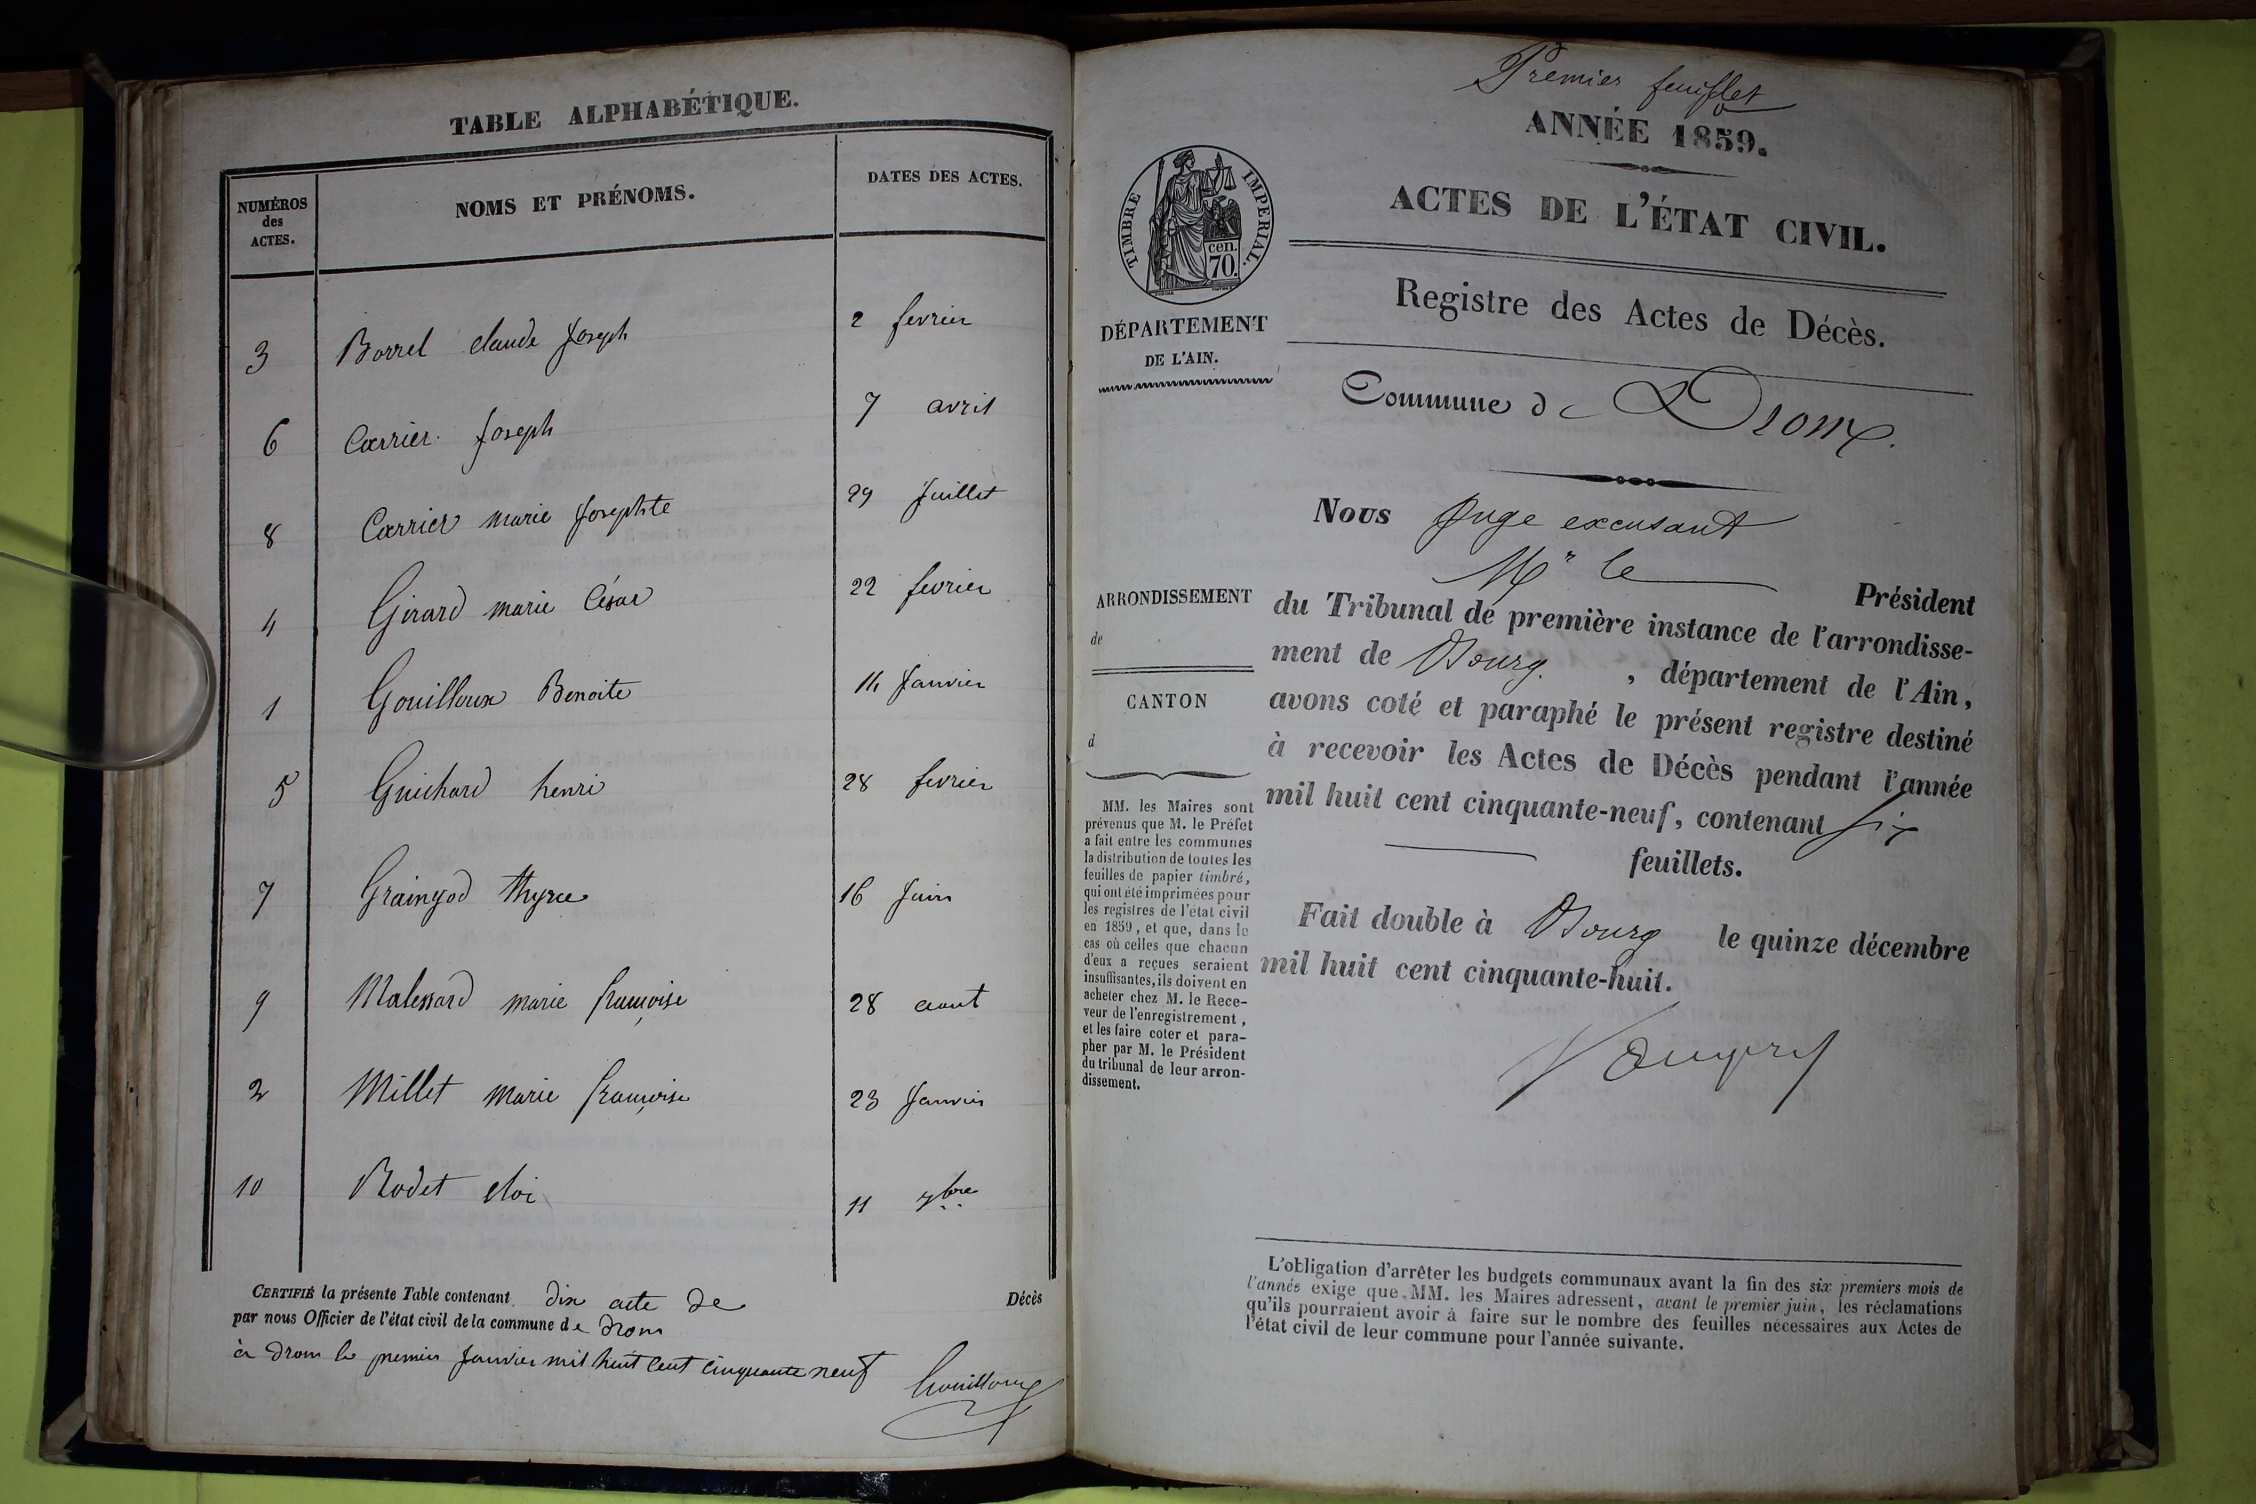 TABLE ALPHABÉTIQUE.
NUMÉROS
des
ACTES.
NOMS ET PRÉNOMS.
DATES DES ACTES.
3 Borrel claude Joseph 2 fevrier
6 Carrier Joseph 7 avril
8 Carrier marie Josephte 29 Juillet
4 Girard marie César 22 fevrier
1 Gouilloux Benoite 14 Janvier
5 Guichard henri 28 fevrier
7 Graingod thyrce 16 Juin
9 Malessard marie françoise 28 aout
2 Millet marie françoise 23 Janvier
10 Rodet eloi 11 7bre
CERTIFIÉ la présente Table contenant dix acte de Décès
par nous Officier de l'état civil de la commune de Drom
à Drom le premier Janvier mil huit cent cinquante neuf
Gouilloux
Premier feuillet
ANNÉE 1859.
ACTES DE L'ÉTAT CIVIL.
TIMBRE IMPERIAL.
cen.
70.
DÉPARTEMENT
DE L'AIN.
Registre des Actes de Décès.
Commune de Drom.
Nous Juge excusant
Mr le Président
du Tribunal de première instance de l'arrondisse-
ment de Bourg. , département de l'Ain,
avons coté et paraphé le présent registre destiné
à recevoir les Actes de Décès pendant l'année
mil huit cent cinquante-neuf, contenant six
feuillets.
Fait double à Bourg le quinze décembre
mil huit cent cinquante-huit.
ARRONDISSEMENT
de
CANTON
d
MM. les Maires sont
prévenus que M. le Préfet
a fait entre les communes
la distribution de toutes les
feuilles de papier timbré,
qui ont été imprimées pour
les registres de l'état civil
en 1859, et que, dans le
cas où celles que chacun
d'eux a reçues seraient
insuffisantes, ils doivent en
acheter chez M. le Rece-
veur de l'enregistrement,
et les faire coter et para-
pher par M. le Président
du tribunal de leur arron-
dissement.
L'obligation d'arrêter les budgets communaux avant la fin des six premiers mois de
l'année exige que MM. les Maires adressent, avant le premier juin, les réclamations
qu'ils pourraient avoir à faire sur le nombre des feuilles nécessaires aux Actes de
l'état civil de leur commune pour l'année suivante.